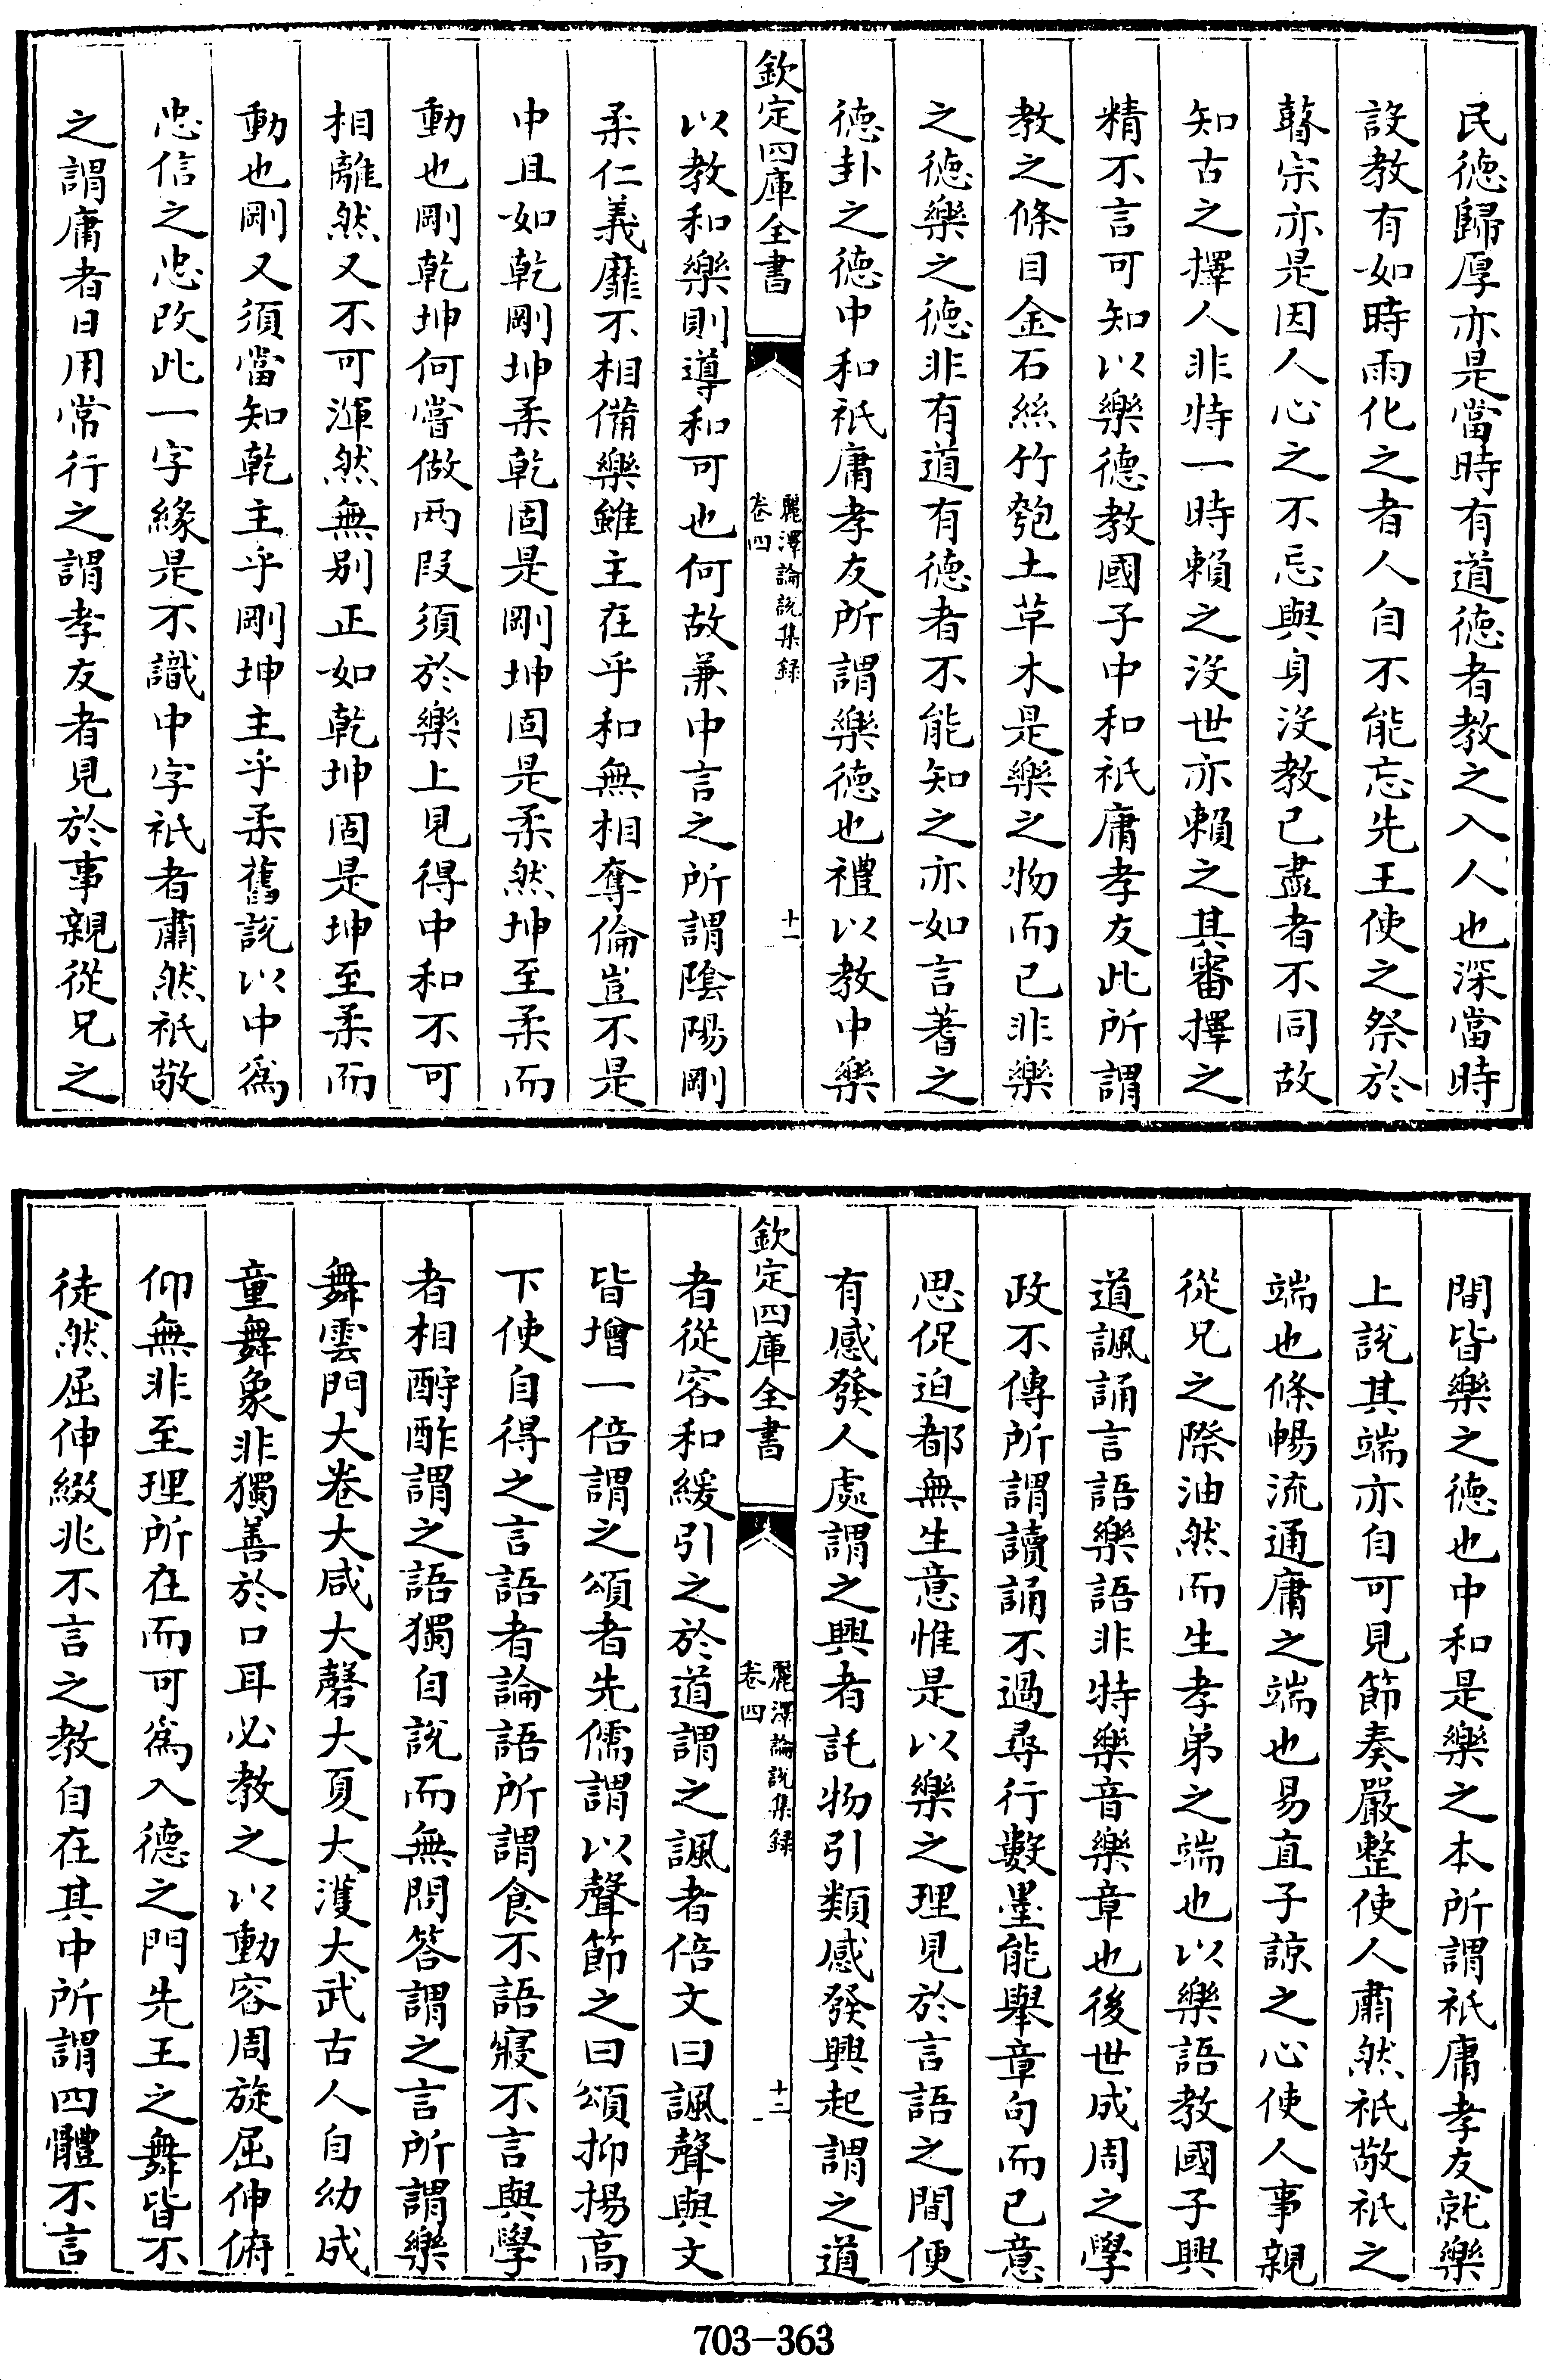 民德歸厚亦是當時有道德者教之入人也深當時
設教有如時雨化之者人自不能忘先王使之祭於
瞽宗亦是因人心之不忘與身沒教已盡者不同故
知古之擇人非特一時賴之沒世亦賴之其審擇之
精不言可知以樂德教國子中和祗庸孝友此所謂
教之條目金石絲竹匏土草木是樂之物而已非樂
之德樂之德非有道有德者不能知之亦如言蓍之
德卦之德中和祗庸孝友所謂樂德也禮以教中樂
欽定四庫全書
麗澤論說集録
卷四
十一
以教和樂則導和可也何故兼中言之所謂陰陽剛
柔仁義靡不相備樂雖主在乎和無相奪倫豈不是
中且如乾剛坤柔乾固是剛坤固是柔然坤至柔而
動也剛乾坤何嘗做两段須於樂上見得中和不可
相離然又不可渾然無别正如乾坤固是坤至柔而
動也剛又須當知乾主乎剛坤主乎柔舊説以中為
忠信之忠改此一字緣是不識中字祗者肅然祗敬
之謂庸者日用常行之謂孝友者見於事親從兄之
間皆樂之德也中和是樂之本所謂祗庸孝友就樂
上說其端亦自可見節奏嚴整使人肅然祗敬祗之
端也條暢流通庸之端也易直子諒之心使人事親
從兄之際油然而生孝弟之端也以樂語教國子興
道諷誦言語樂語非特樂音樂章也後世成周之學
政不傳所謂讀誦不過尋行數墨能舉章句而已意
思促迫都無生意惟是以樂之理見於言語之間便
有感發人處謂之興者託物引類感發興起謂之道
欽定四庫全書
麗澤論說集録
卷四
十二
者從容和緩引之於道謂之諷者倍文曰諷聲與文
皆增一倍謂之頌者先儒謂以聲節之曰頌抑揚高
下使自得之言語者論語所謂食不語寢不言與學
者相酧酢謂之語獨自說而無問答謂之言所謂樂
舞雲門大卷大咸大㲈大夏大濩大武古人自幼成
童舞象非獨善於口耳必教之以動容周旋屈伸俯
仰無非至理所在而可為入德之門先王之舞皆不
徒然屈伸綴兆不言之教自在其中所謂四體不言
703-363